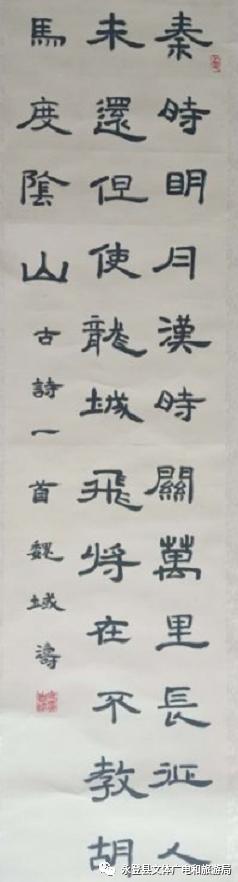 秦時明月漢時關萬里長征人
未還但使龍城飛將在不教胡
馬度陰山古詩一首魏城濤
永登县文体广电和旅游局